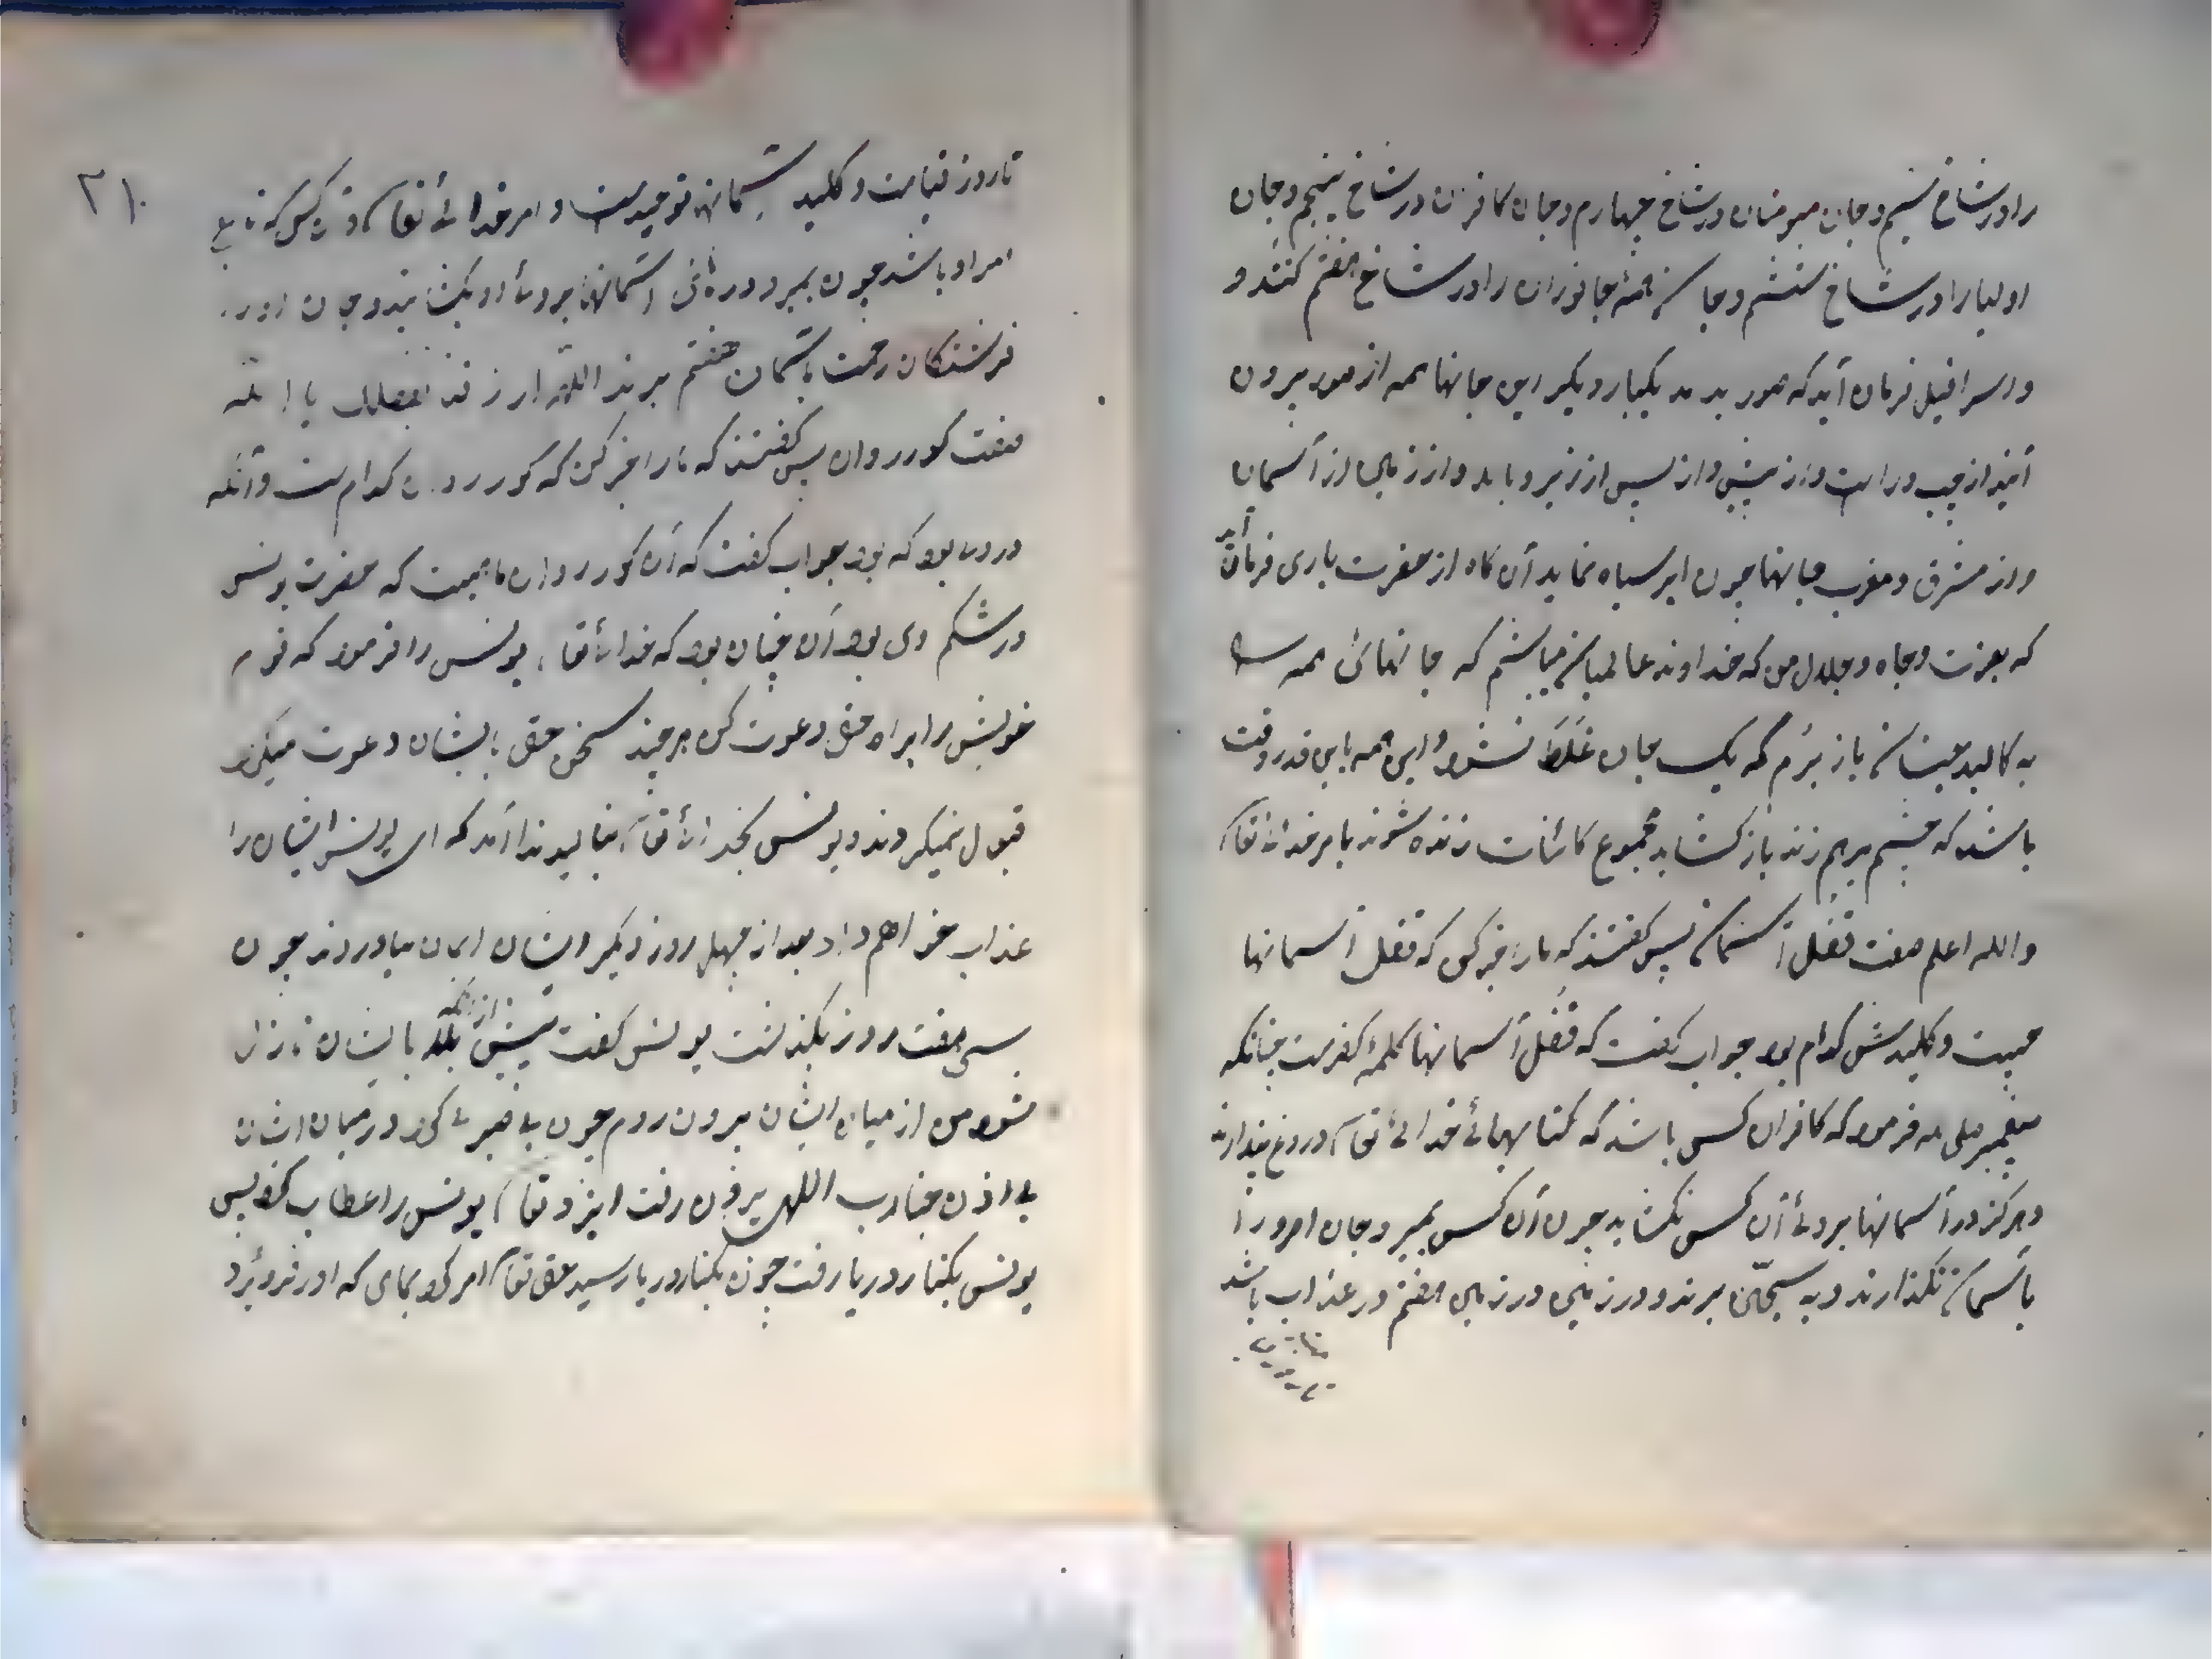 را در شاخ سیم و جان مومنان در شاخ چهارم و جان کافران در شاخ پنجم و جان
اولیا را در شاخ ششم و جان همه جانوران را در شاخ هفتم کنند و
و اسرافیل فرمان آید که صور بدمد یکبار دیگر این جانها همه از صور بیرون
آیند از چپ و راست و از پیش و از پس از زیر و بالا و از زمین از آسمان
و از مشرق و مغرب جانها چون ابر سیاه نماید آن گاه از حضرت باری فرمان آید
که بعزت و جاه و جلال من که خداوند عالمیان میباشم که جانهائ همه
به کالبد جنان باز برم که یک جان غلط نشود و این همه باین قدر وقت
باشد که چشم برهم زند باز کشاید مجموع کائنات زنده شوند بامر خدائ تعا
والله اعلم صفت قفل آسمان پس گفتند که مارا خبر کن که قفل آسمانها
چیست و کلیدش کدام بود جواب گفت که قفل آسمانها کلمۀ کفرست چنانکه
پیغمبر صلی فرمود که کافران کسی باشد که کتابهائ خدائ تعا دروغ پندارند
و هرگز در آسمانها بروئ آن کس نکشاید چون آن کس بمیرد جان او را
باسمان نگذارند و به سجین برند و در زمین هفتم در عذاب باشد
۲۱
تا روز قیامت و کلید اسمانها توحیدست و امر خدائ تعا هر کس که تابع
امر او باشد چون بمیرد درهائ اسمانها بروئ او بکشایند و جان او را
فرشتکان رحمت باسمان هفتم برند اللهم ارزقنا بفضلک یا الله
صفت کور روان پس گفتند که مارا خبر کن که کور روان کدام ست و آنکه
درون بود که بود جواب گفت که آن کور روان ماهیست که حضرت یونس
در شکم وی بود آن چنان بود که خدائ تعا یونس را فرمود که قوم
خویش را براه حق دعوت کن هر چند سخن حق بایشان دعوت میکرد
قبول نمیکردند و یونس بخدائ تعا بنالید ندا آمد که ای یونس ایشان را
عذاب خواهم داد بعد از چهل روز دیگر ایشان ایمان نیاوردند چون
سی هفت روز بگذشت یونس گفت پیش از آنکه بلا بایشان نازل
شود من از میان ایشان بیرون روم چون بی صبری کرد در میان ایشان
بی اذن جناب اللهی بیرون رفت ایزد تعا یونس را عطاب کرد پس
یونس بکنار دریا رفت چون بکنار دریا رسید حق تعا امر کرد بماهی که او را فرو برد